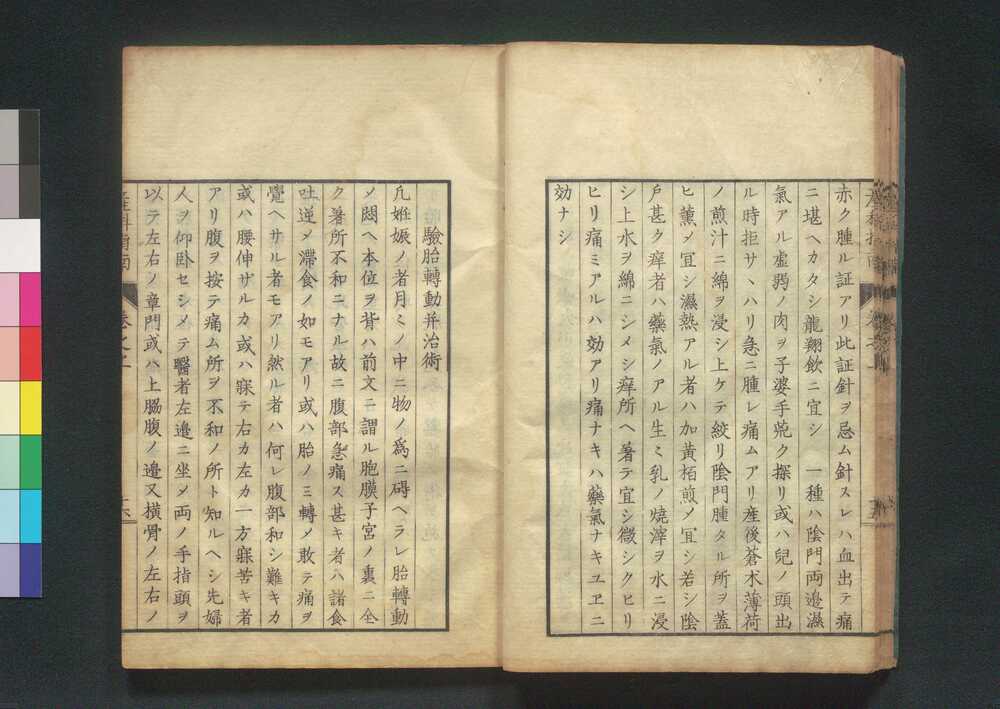 赤ク腫ル証アリ此証針ヲ忌ム針スレハ血出テ痛
ニ堪ヘカタシ龍翔飲ニ宜シ　一種ハ陰門両邉濕
氣アル虚弱ノ肉ヲ子婆手荒ク探リ或ハ兒ノ頭出
ル時拒サヽハリ急ニ腫レ痛ムアリ産後蒼朮薄荷
ノ煎汁ニ綿ヲ浸シ上ケテ絞リ陰門腫タル所ヲ蓋
ヒ薫メ宜シ濕熱アル者ハ加黄栢煎メ宜シ若シ陰
戸甚ク痒者ハ藥氣ノアル生ミ乳ノ焼滓ヲ水ニ浸
シ上水ヲ綿ニシメシ痒所ヘ著テ宜シ微シクヒリ
ヒリ痛ミアルハ効アリ痛ナキハ藥氣ナキユヱニ
効ナシ
驗胎轉動并治術
凡姙娠ノ者月ミノ中ニ物ノ爲ニ碍ヘラレ胎轉動
メ悶ヘ本位ヲ背ハ前文ニ謂ル胞膜子宮ノ裏ニ全
ク著所不和ニナル故ニ腹部急痛ス甚キ者ハ諸食
吐逆メ滯食ノ如モアリ或ハ胎ノミ轉メ敢テ痛ヲ
覺ヘサル者モアリ然ル者ハ何レ腹部和シ難キカ
或ハ腰伸ザルカ或ハ寐テ右カ左カ一方寐苦キ者
アリ腹ヲ按テ痛ム所ヲ不和ノ所ト知ルヘシ先婦
人ヲ仰卧セシメテ醫者左邉ニ坐メ両ノ手指頭ヲ
以テ左右ノ章門或ハ上脇腹ノ邉又横骨ノ左右ノ